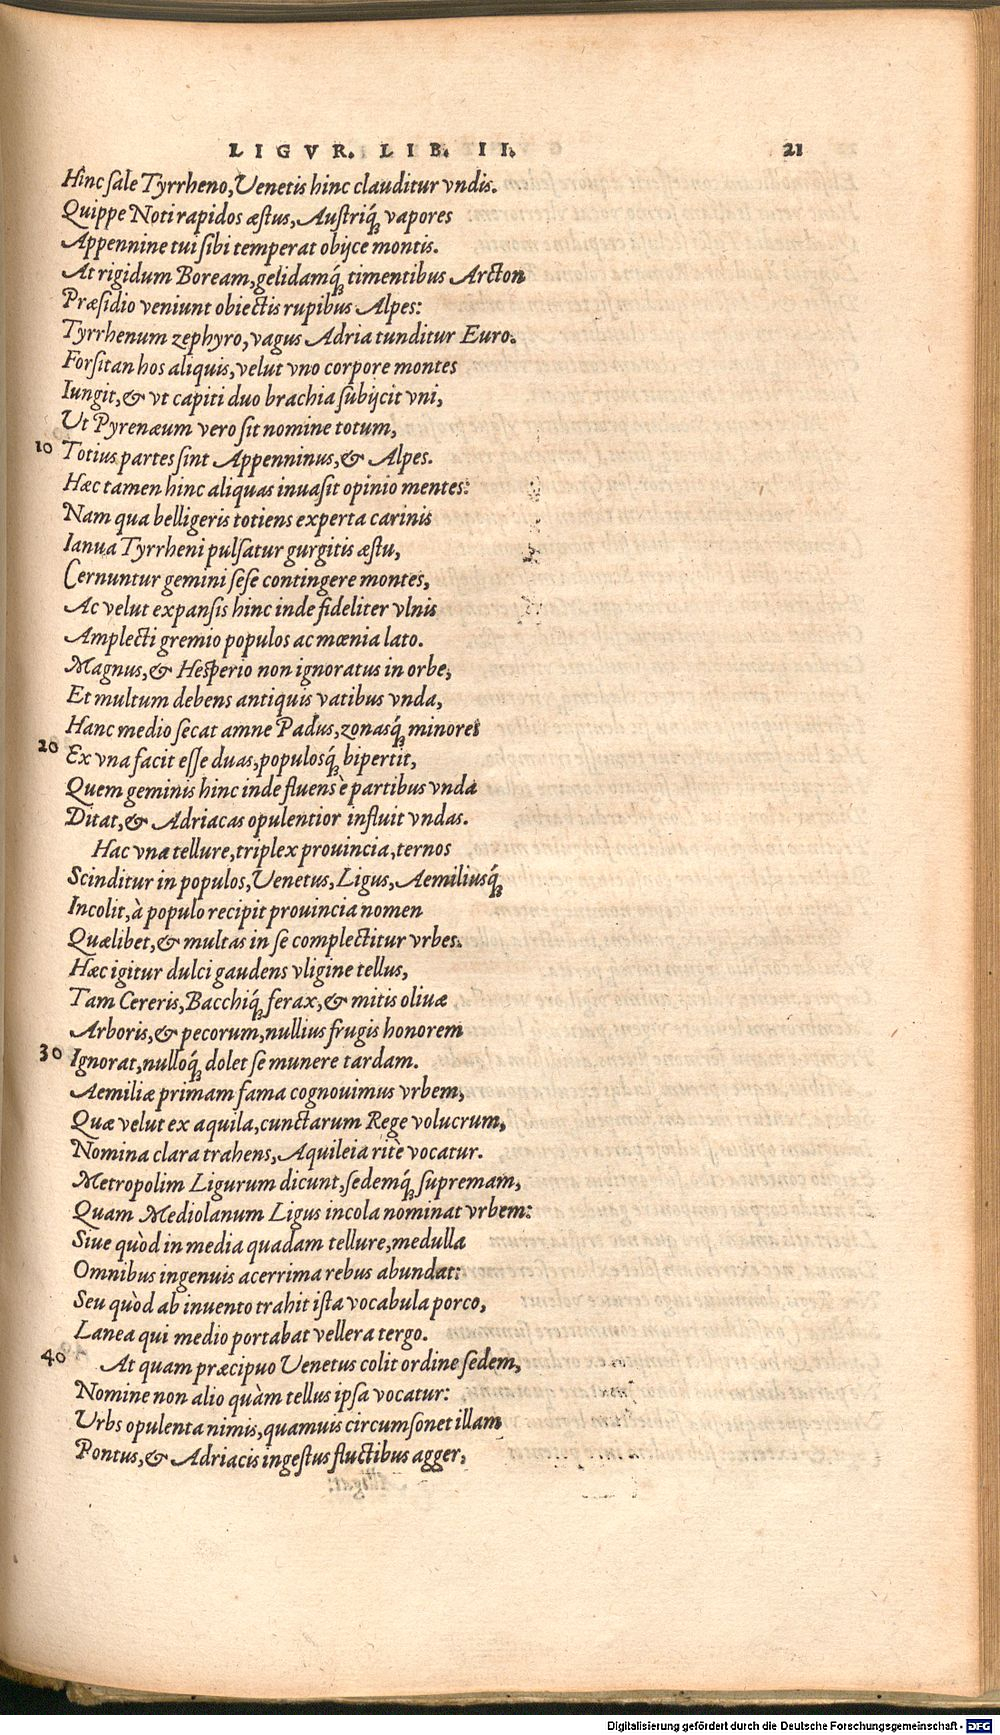 LIGVR. LIB. II. 21
Hinc sale Tyrrheno, Venetis hinc clauditur vndis.
Quippe Noti rapidos æstus, Austriq́; vapores
Appennine tui sibi temperat obijce montis.
At rigidum Boream, gelidamq́; timentibus Arcton
Præsidio veniunt obiectis rupibus Alpes:
Tyrrhenum zephyro, vagus Adria tunditur Euro.
Forsitan hos aliquis, velut vno corpore montes
Iungit, & vt capiti duo brachia subijcit vni,
Ut Pyrenæum vero sit nomine totum,
10 Totius partes sint Appenninus, & Alpes.
Hæc tamen hinc aliquas inuasit opinio mentes:
Nam qua belligeris totiens experta carinis
Ianua Tyrrheni pulsatur gurgitis æstu,
Cernuntur gemini sese contingere montes,
Ac velut expansis hinc inde fideliter vlnis
Amplecti gremio populos ac mœnia lato.
Magnus, & Hesperio non ignoratus in orbe,
Et multum debens antiquis vatibus vnda,
Hanc medio secat amne Padus, zonasq́; minores
20 Ex vna facit esse duas, populosq́; bipertit,
Quem geminis hinc inde fluens è partibus vnda
Ditat, & Adriacas opulentior influit vndas.
Hac vna tellure, triplex prouincia, ternos
Scinditur in populos, Venetus, Ligus, Aemiliusq́;
Incolit, à populo recipit prouincia nomen
Quælibet, & multas in se complectitur vrbes.
Hæc igitur dulci gaudens vligine tellus,
Tam Cereris, Bacchiq́; ferax, & mitis oliuæ
Arboris, & pecorum, nullius frugis honorem
30 Ignorat, nulloq́; dolet se munere tardam.
Aemiliæ primam fama cognouimus vrbem,
Quæ velut ex aquila, cunctarum Rege volucrum,
Nomina clara trahens, Aquileia ritè vocatur.
Metropolim Ligurum dicunt, sedemq́; supremam,
Quam Mediolanum Ligus incola nominat vrbem:
Siue quòd in media quadam tellure, medulla
Omnibus ingenuis acerrima rebus abundat:
Seu quòd ab inuento trahit ista vocabula porco,
Lanea qui medio portabat vellera tergo.
40 At quam præcipuo Venetus colit ordine sedem,
Nomine non alio quàm tellus ipsa vocatur:
Urbs opulenta nimis, quamuis circumsonet illam
Pontus, & Adriacis ingestus fluctibus agger,
Digitalisierung gefördert durch die Deutsche Forschungsgemeinschaft - DFG